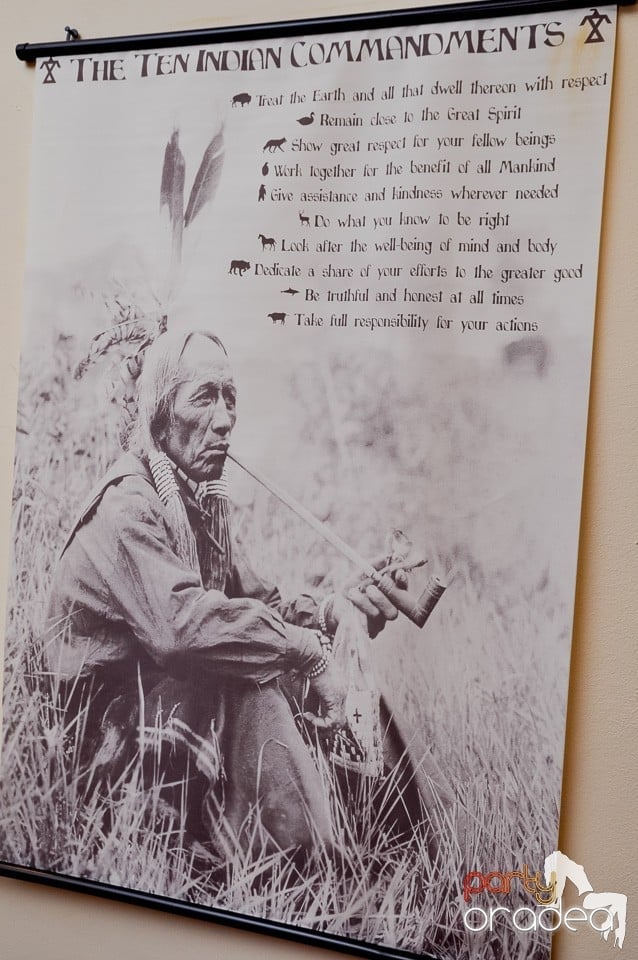 THE TEN INDIAN COMMANDMENTS
Treat the Earth and all that dwell thereon with respect
Remain close to the Great Spirit
Show great respect for your fellow beings
Work together for the benefit of all Mankind
Give assistance and kindness wherever needed
Do what you know to be right
Look after the well-being of mind and body
Dedicate a share of your efforts to the greater good
Be truthful and honest at all times
Take full responsibility for your actions
party
oradea